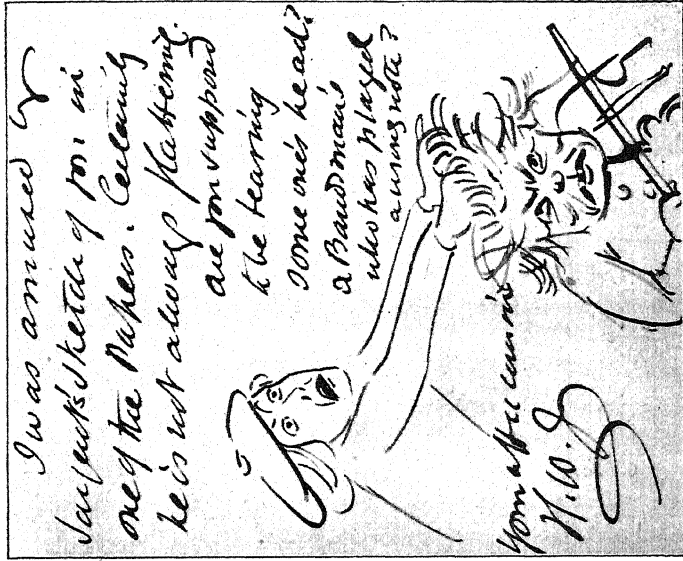 I was amused by
Sargent's sketch of you in
one of the Papers. Certainly
he is not always flattering.
are you supposed
to be tearing
some one's head?
a Bandman's
who has played
a wrong note?
your affec cousin
H.W.